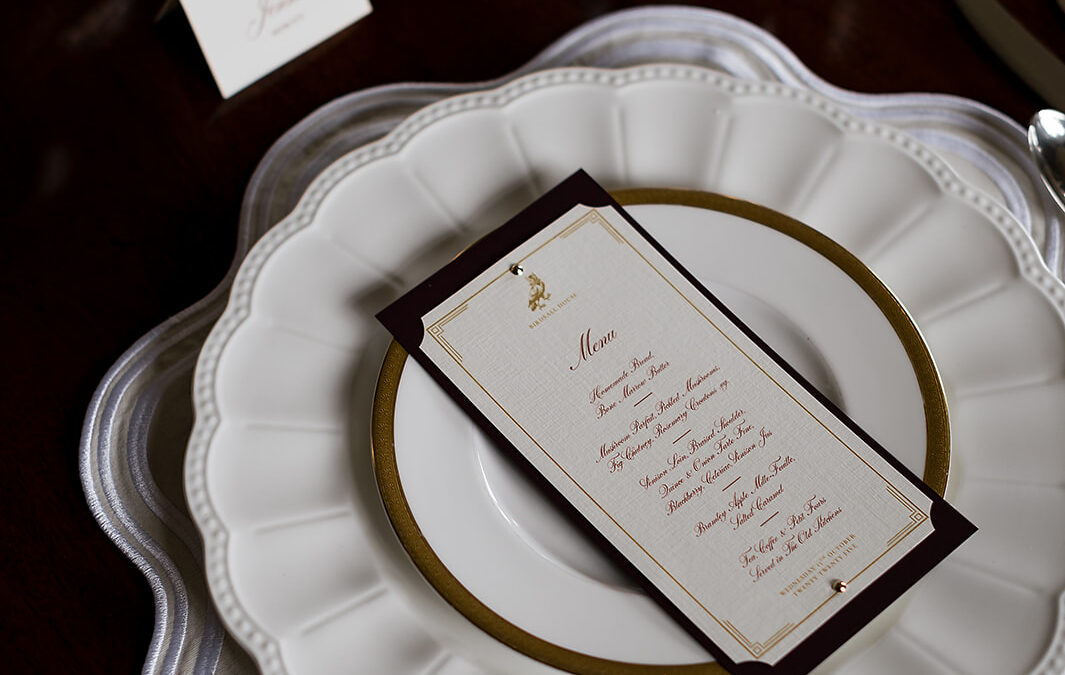 BIRDSALL HOUSE
Menu
Homemade Bread,
Bone Marrow Butter
Mushroom Parfait, Pickled Mushrooms,
Fig Chutney, Rosemary Croutons vg
Venison Loin, Braised Shoulder,
Quince & Onion Tarte Fine,
Blackberry, Celeriac, Venison Jus
Bramley Apple Mille-Feuille,
Salted Caramel
Tea, Coffee & Petit Fours
Served in The Old Kitchens
WEDNESDAY OCTOBER
TWENTY TWENTY FIVE